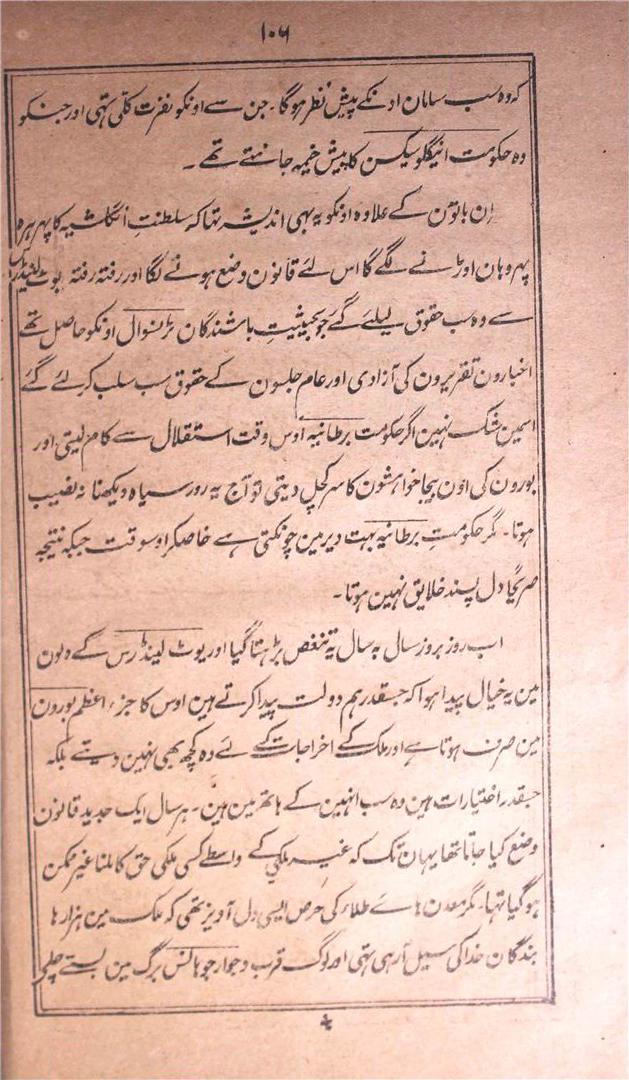 ۱۰۶
کہ وہ سب سامان اونکے پیش نظر ہوگا۔ جن سے اونکو نفرت کلی تہی اور جنکو
وہ حکومت اینگلو سیکسن کا پیش خیمہ جانتے تھے۔
اِن باتون کے علاوہ اونکو یہ بہی اندیشہ تہا کہ سلطنتِ انگلشیہ کا پہر ہرہ
پہر وہان اوڑنے لگے گا اس لئے قانون وضع ہونے لگا اور رفتہ رفتہ یوٹ لینڈرس
سے وہ سب حقوق لیلئے گئے جو بحیثیتِ باشندگان ٹرانسوال اونکو حاصل تھے
اخبارون تقریرون کی آزادی اور عام جلسون کے حقوق سب سلب کر لئے گئے
اسمین شک نہین اگر حکومت برطانیہ اوس وقت استقلال سے کام لیتی اور
بورون کی اون بیجا خواہشون کا سر کچل دیتی تو آج یہ روز سیاہ دیکھنا نہ نصیب
ہوتا۔ مگر حکومتِ برطانیہ بہت دیر مین چونکتی ہے خاصکر اوسوقت جبکہ نتیجہ
صریحًا دل پسند خلایق نہین ہوتا۔
اب روز بروز سال بہ سال یہ تنغص بڑہتا گیا اور یوٹ لینڈرس کے دلون
مین یہ خیال پیدا ہوا کہ جسقدر ہم دولت پیدا کرتے ہین اوس کا جزء اعظم بورون
مین صرف ہوتا ہے اور ملک کے اخراجات کے لئے وہ کچھ بھی نہین دیتے بلکہ
جسقدر اختیارات ہین وہ سب انہین کے ہاتھ مین ہین۔ ہر سال ایک جدید قانون
وضع کیا جاتا تھا یہان تک کہ غیر ملکی کے واسطے کسی ملکی حق کا ملنا غیر ممکن
ہوگیا تہا۔ مگر معدن ہائے طلاء کی حرص ایسی دل آویز تھی کہ ملک مین ہزارہا
بندگان خدا کی سبیل آرہی تہی اور لوگ قرب و جوار جوہانس برگ مین بستے چلے